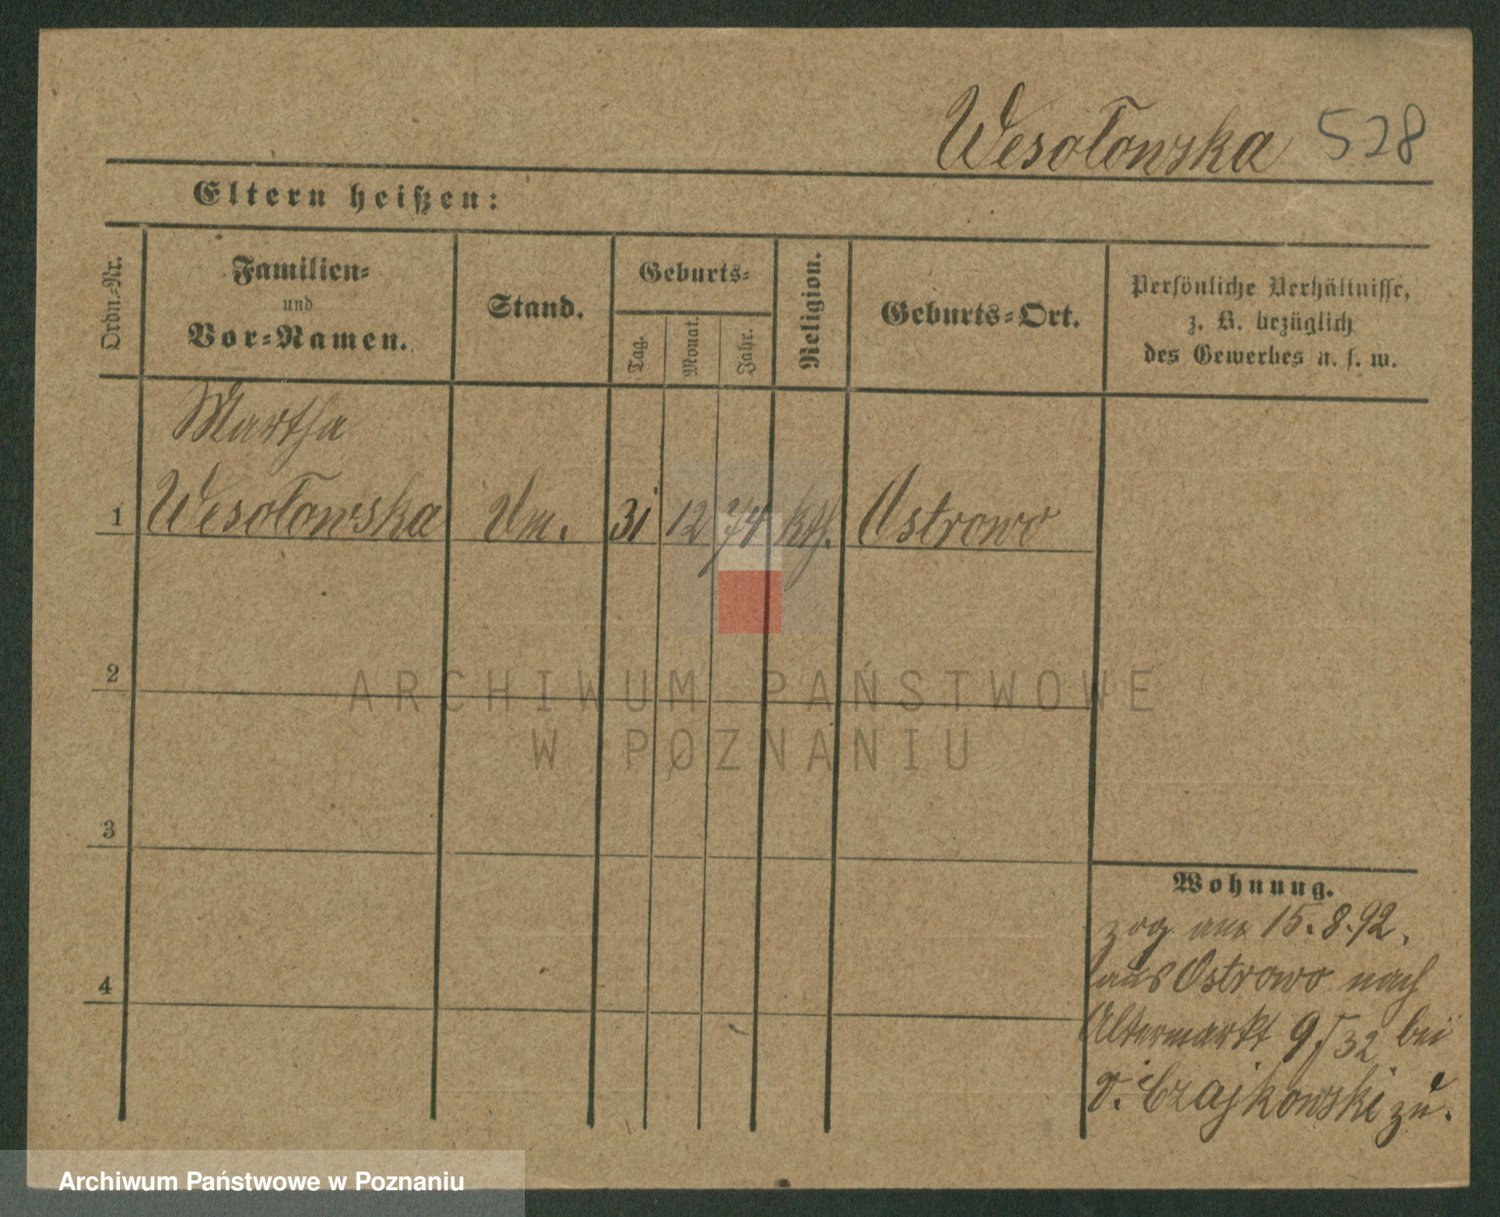 Wesołowska 528
Eltern heißen:
Ordn.-Nr.
Familien-
und
Vor-Namen.
Stand.
Geburts-
Tag.
Monat.
Jahr.
Religion.
Geburts-Ort.
Persönliche Verhältnisse,
z. B. bezüglich
des Gewerbes u. s. w.
Martha
1 Wesołowska 31 12 74 kth. Ostrowo
2
ARCHIWUM PAŃSTWOWE
W POZNANIU
3
Wohnung.
zog am 15.8.92.
aus Ostrowo nach
4
Altermarkt 9/32 bei
v. Czajkowski zu.
Archiwum Państwowe w Poznaniu